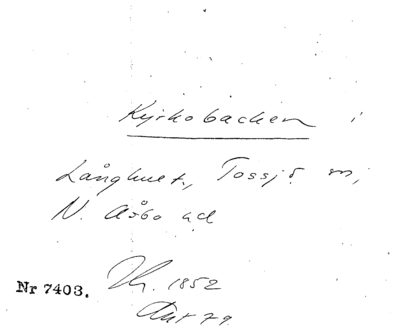 Kyrkobacken i
Långhult, Tossjö sn,
N. Åsbo hd
Nr 7403. 1852
Ant 79